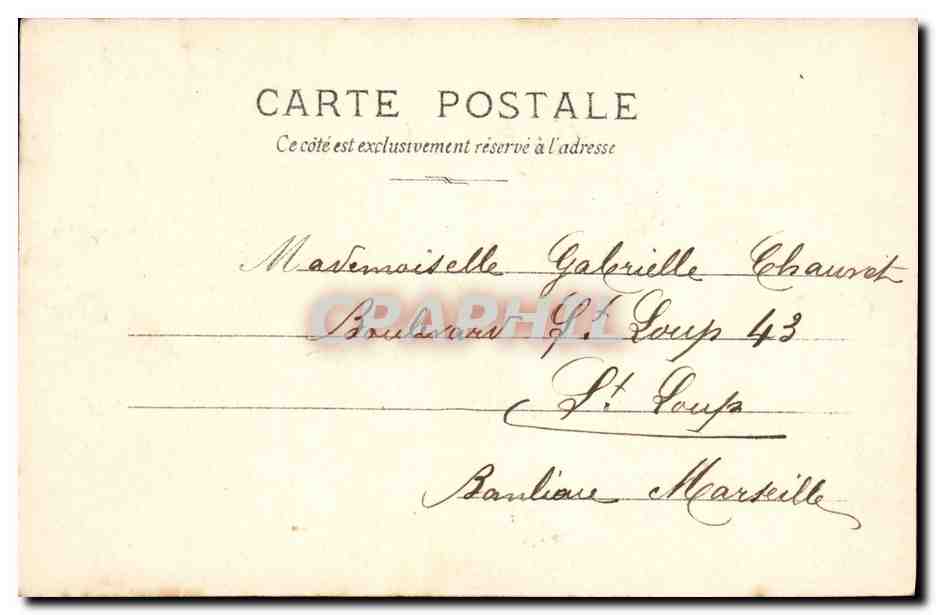 CARTE POSTALE
Ce côté est exclusivement réservé à l'adresse
Mademoiselle Gabrielle Chauvet
Boulevard St. Loup 43
St. Loup
Banlieue Marseille
CPAPHIL